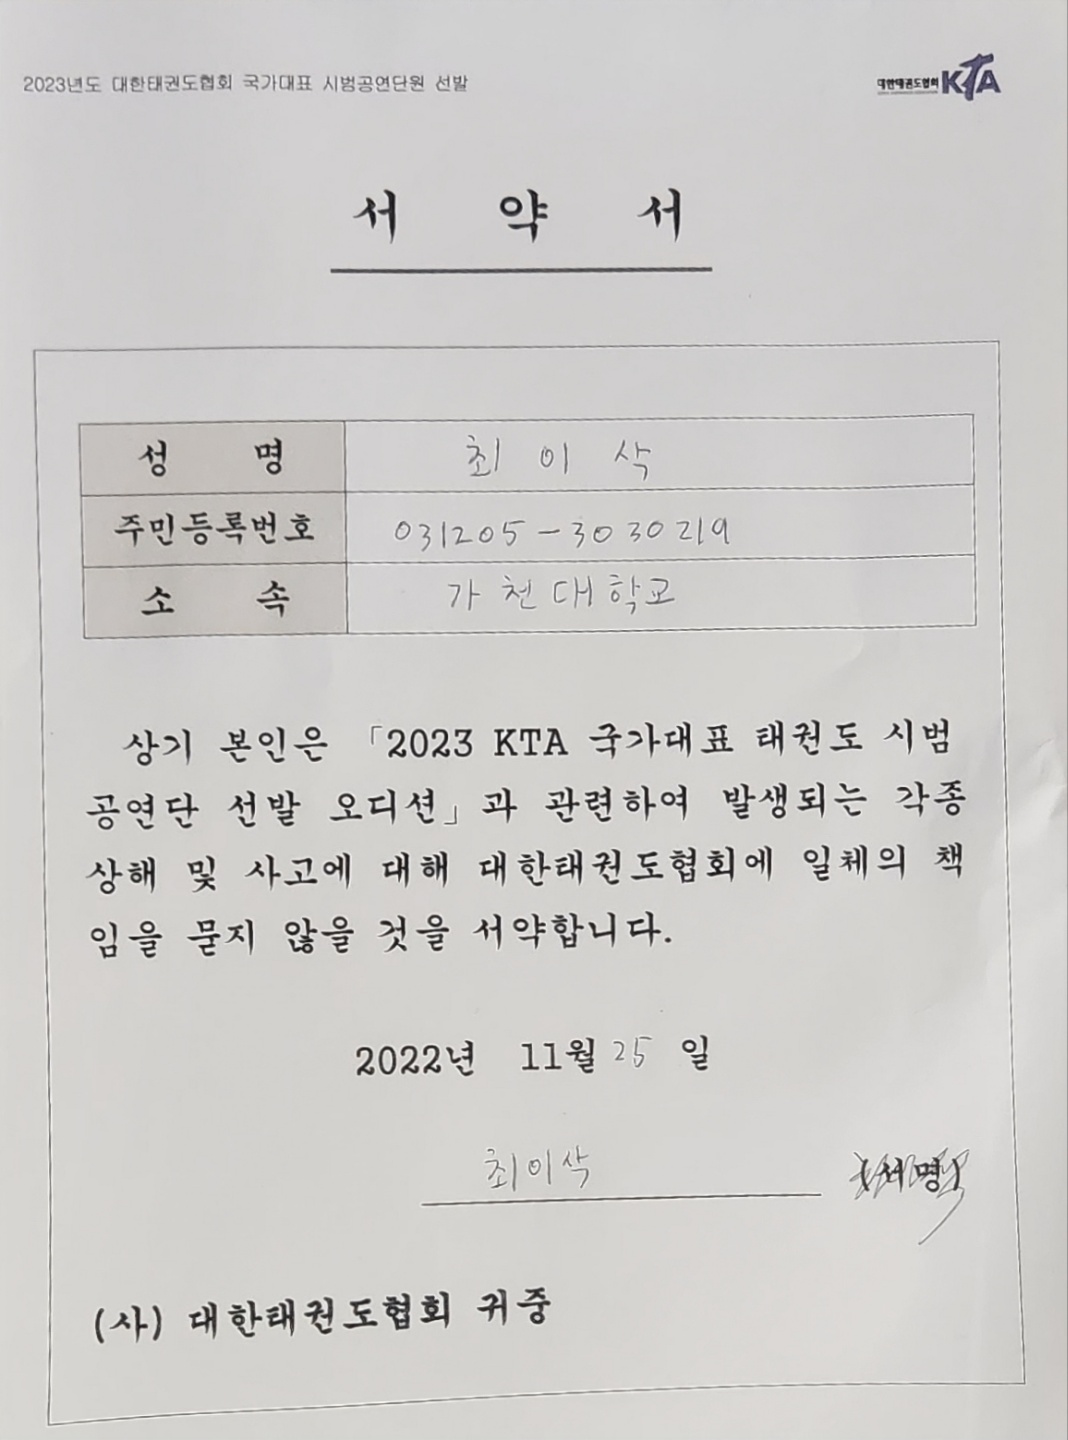 2023년도 대한태권도협회 국가대표 시범공연단원 선발
대한태권도협회 KTA
서 약 서
성 명 최이삭
주민등록번호 031205-3030219
소 속 가천대학교
상기 본인은 「2023 KTA 국가대표 태권도 시범
공연단 선발 오디션」과 관련하여 발생되는 각종
상해 및 사고에 대해 대한태권도협회에 일체의 책
임을 묻지 않을 것을 서약합니다.
2022년 11월 25 일
최이삭 (서명)
(사) 대한태권도협회 귀중